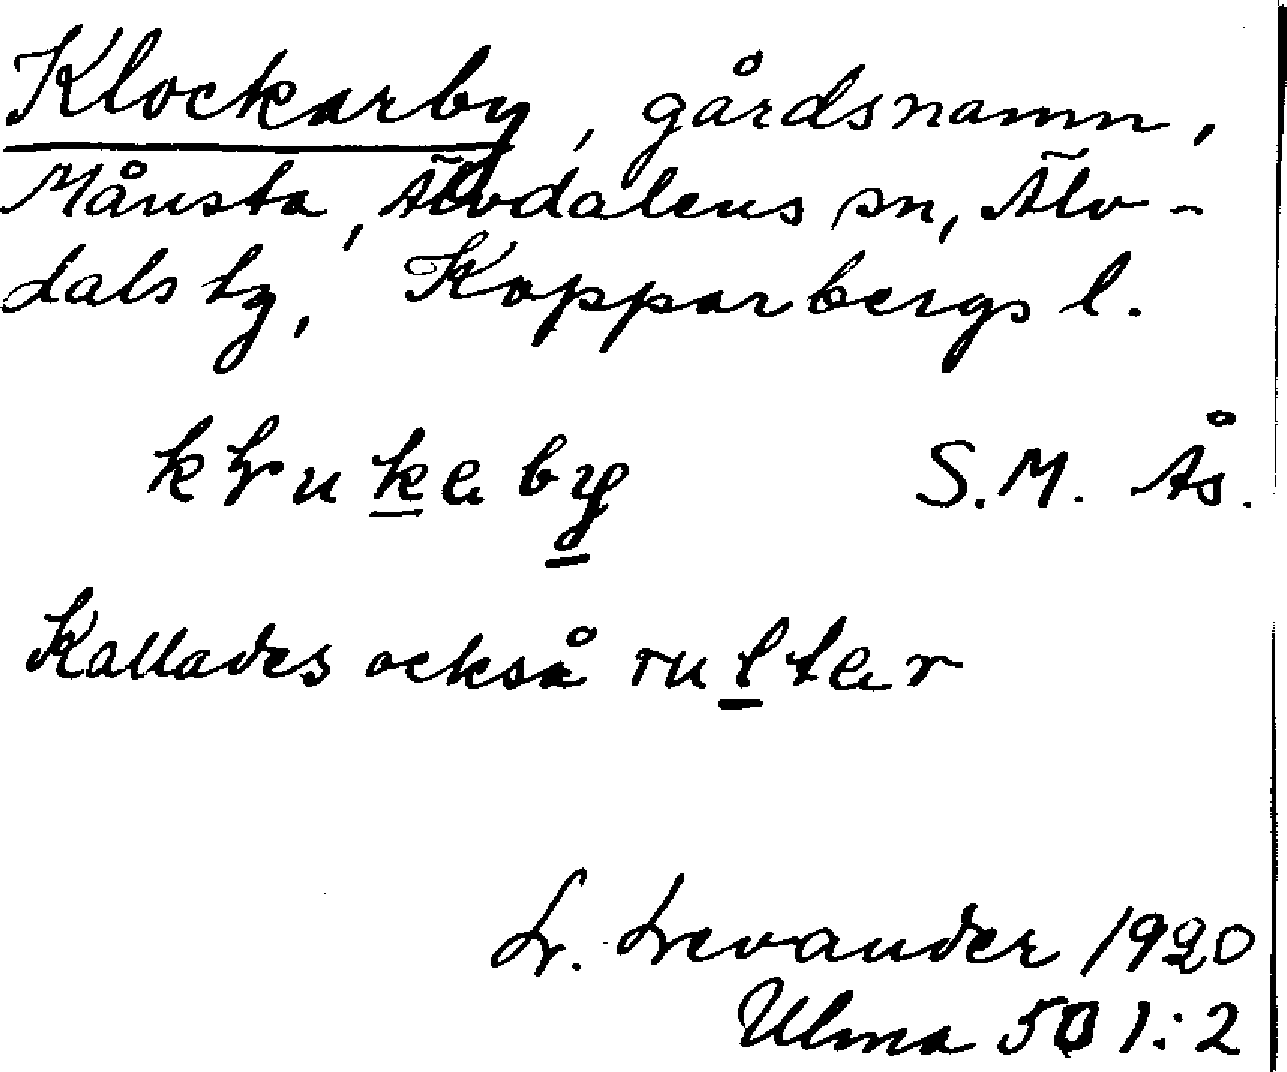 Klockarby, gårdsnamn,
Månsta, Älvdalens sn, Älv-
dals tg, Kopparbergs l.
S.M. Ås.
Kallades också rulter
L. Levander 1920
Ulma 501:2